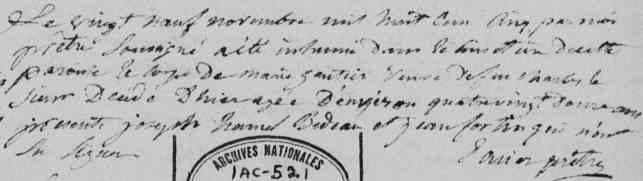 Le vingt neuf novembre mil huit cen cinq par moi
prêtre Sousigné a été inhumé dans le cimetier de cette
paroise le corps de marie gautier veuve de feu charles le
sieur Décédé D'hier agée D'environ quatrevingt ans
présents joseph Bedeau et jean fortin qui n'on
Su Signer
prêtre
ARCHIVES NATIONALES
1AC-521